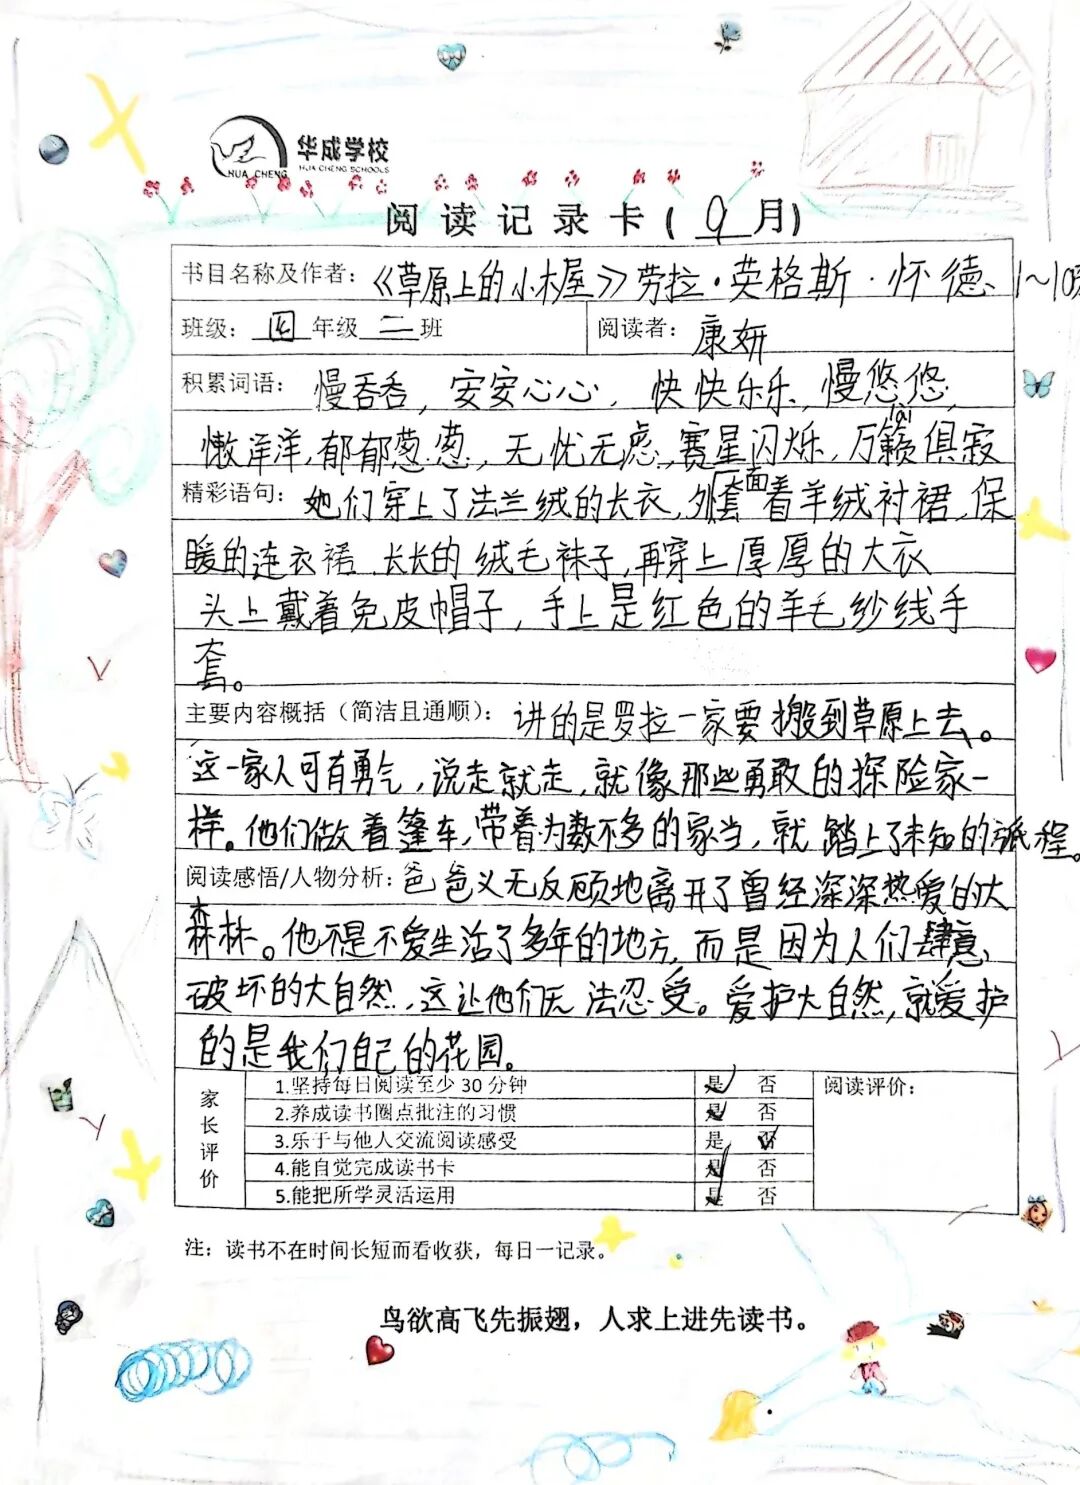 华成学校
HUA CHENG
HUA CHENG SCHOOLS
阅读记录卡(9月)
书目名称及作者:《草原上的小木屋》劳拉·英格斯·怀德、1~10页
班级: 四年级二班 阅读者: 康妍
积累词语: 慢吞吞,安安心心,快快乐乐,慢悠悠,
lài
懒洋洋,郁郁葱葱,无忧无虑,赛星闪烁,万籁俱寂
精彩语句: 她们穿上了法兰绒的长衣,外面套着羊绒衬裙,保
暖的连衣裙、长长的绒毛袜子,再穿上厚厚的大衣
头上戴着兔皮帽子,手上是红色的羊毛纱线手
套。
主要内容概括(简洁且通顺): 讲的是罗拉一家要搬到草原上去。
这一家人可有勇气,说走就走,就像那些勇敢的探险家一
样。他们做着篷车,带着为数不多的家当,就踏上了未知的旅程。
阅读感悟/人物分析: 爸爸义无反顾地离开了曾经深深热爱的大
森林。他不是不爱生活了多年的地方,而是因为人们肆意
破坏的大自然,这让他们无法忍受。爱护大自然,就爱护
的是我们自己的花园。
家长评价
1.坚持每日阅读至少 30 分钟 是 否 阅读评价:
2.养成读书圈点批注的习惯 是 否
3.乐于与他人交流阅读感受 是 否
4.能自觉完成读书卡 是 否
5.能把所学灵活运用 是 否
注: 读书不在时间长短而看收获,每日一记录。
鸟欲高飞先振翅,人求上进先读书。